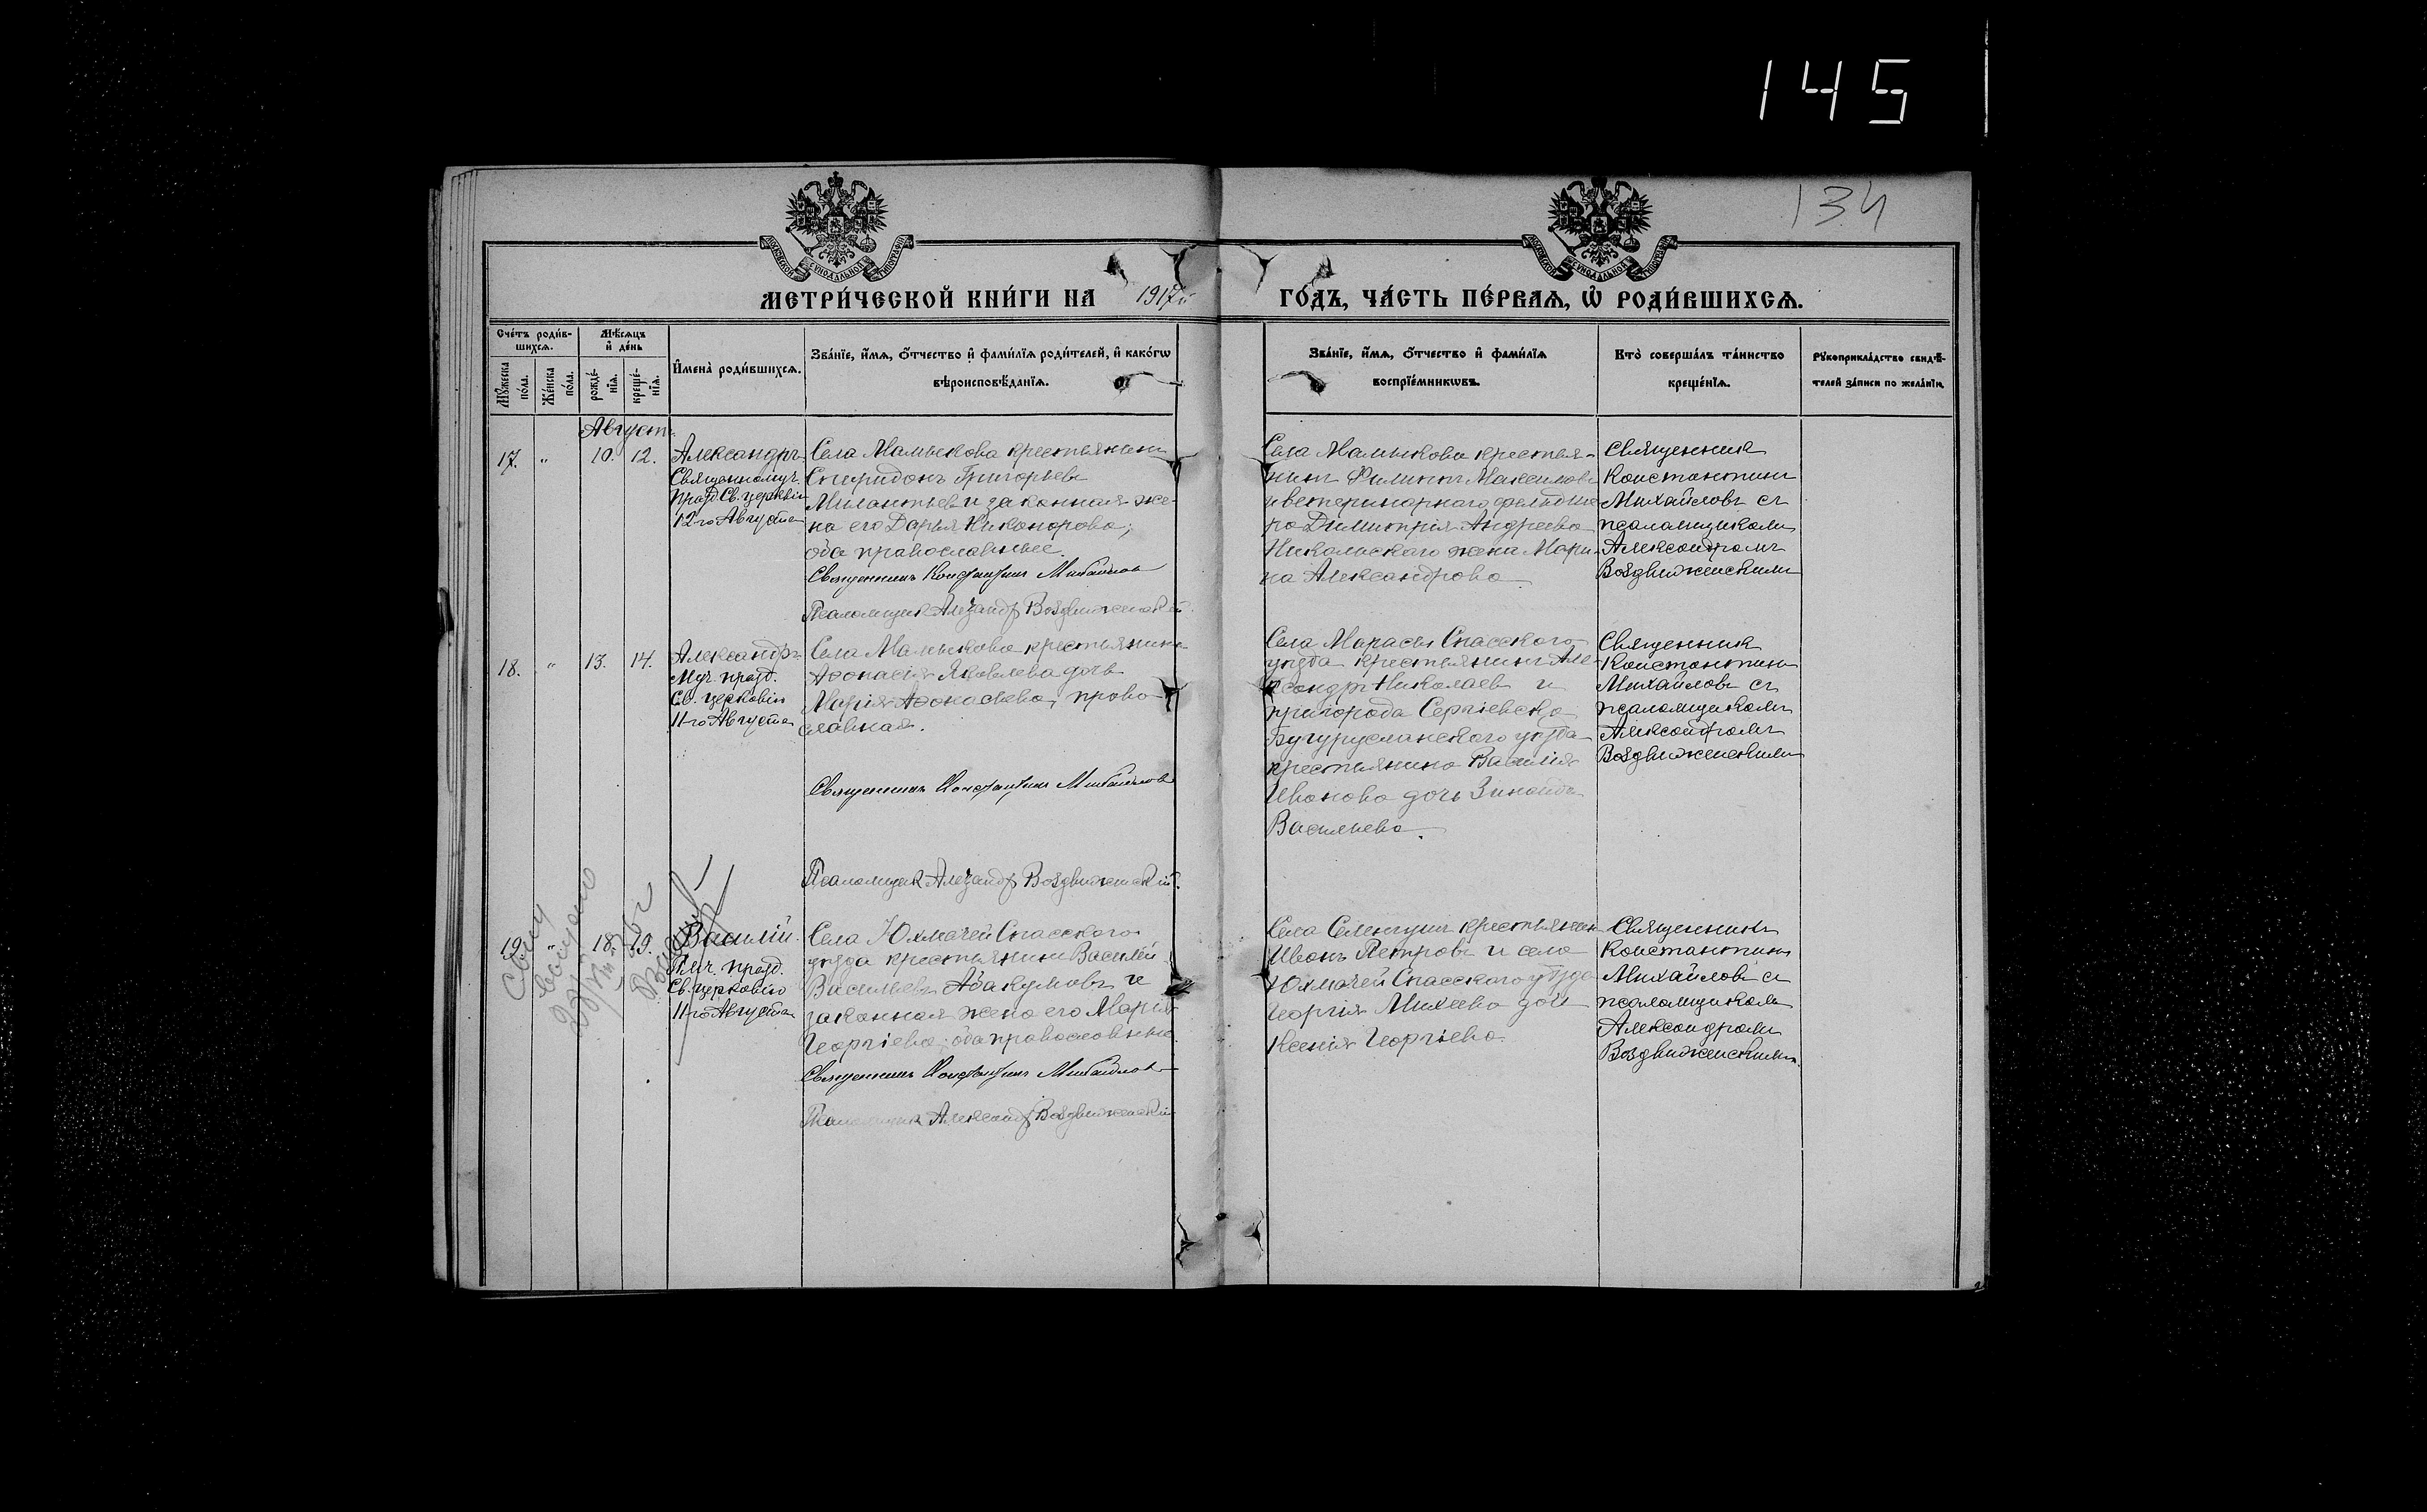 145
134
МОСКОВСКОЙ СѴНОДАЛЬНОЙ ТИПОГРАФІИ
МОСКОВСКОЙ СѴНОДАЛЬНОЙ ТИПОГРАФІИ
МЕТРИ́ЧЕСКОЙ КНИ́ГИ НА 1917й ГО́ДЪ, ЧА́СТЬ ПЕ́РВАѦ, Ѡ҆ РОДИ́ВШИХСѦ.
Сче́тъ роди́в-
шихсѧ.
Мꙋ́жеска по́ла.
Же́нска по́ла.
Мѣ́сѧцъ
и҆ де́нь
рожде́-
нїѧ.
креще́-
нїѧ.
И҆мена̀ роди́вшихсѧ.
Зва́нїе, и҆́мѧ, ѻ҆́тчество и҆ фами́лїѧ роди́телей, и҆ како́гѡ
вѣроисповѣ́данїѧ.
Зва́нїе, и҆́мѧ, ѻ҆́тчество и҆ фами́лїѧ
воспрїе́мникѡвъ.
Кто̀ соверша́лъ та́инство
креще́нїѧ.
Рꙋкоприкла́дство свидѣ́-
телей за́писи по жела́нїю.
Августъ
17. " 10. 12.
Александръ
Священномуч.
празд. Св. церковію
12-го Августа
Села Мамыкова крестьянинъ
Спиридонъ Григорьевъ
Милантьевъ и законная же-
на его Дарья Никонорова;
оба православные.
Священникъ Константинъ Михайловъ
Псаломщик Александръ Воздвиженскій.
Села Мамыкова крестья-
нинъ Филиппъ Максимовъ
и ветеринарнаго фельдше-
ра Димитрія Андреева
Никольскаго жена Мари-
на Александрова
Священникъ
Константинъ
Михайловъ съ
псаломщикомъ
Александромъ
Воздвиженскимъ
18. " 13. 14.
Александръ
Муч. празд.
Св. церковію
11-го Августа
Села Мамыкова крестьянина
Афонасія Яковлева дочь
Марія Афонасьева, право-
славная.
Священникъ Константинъ Михайловъ
Псаломщик Александръ Воздвиженскій.
Села Марасы Спасскаго
уѣзда крестьянинъ Але-
ксандръ Николаевъ и
пригорода Сергіевска
Бугурусланскаго уѣзда
крестьянина Василія
Иванова дочь Зинаида
Васильева.
Священникъ
Константинъ
Михайловъ съ
псаломщикомъ
Александромъ
Воздвиженскимъ
19. " 18. 19.
Василій.
Муч. празд.
Св. церковію
11-го Августа
Села Юхмачей Спасскаго
уѣзда крестьянинъ Василій
Васильевъ Абакумовъ и
законная жена его Марія
Георгіева; оба православные.
Священникъ Константинъ Михайловъ
Псаломщикъ Александръ Воздвиженскій
Иванъ Петровъ и села
Юхмачей Спасскаго уѣзда
Георгія Михеева дочь
Ксенія Георгіева.
Священникъ
Константинъ
Михайловъ съ
псаломщикомъ
Александромъ
Воздвиженскимъ.